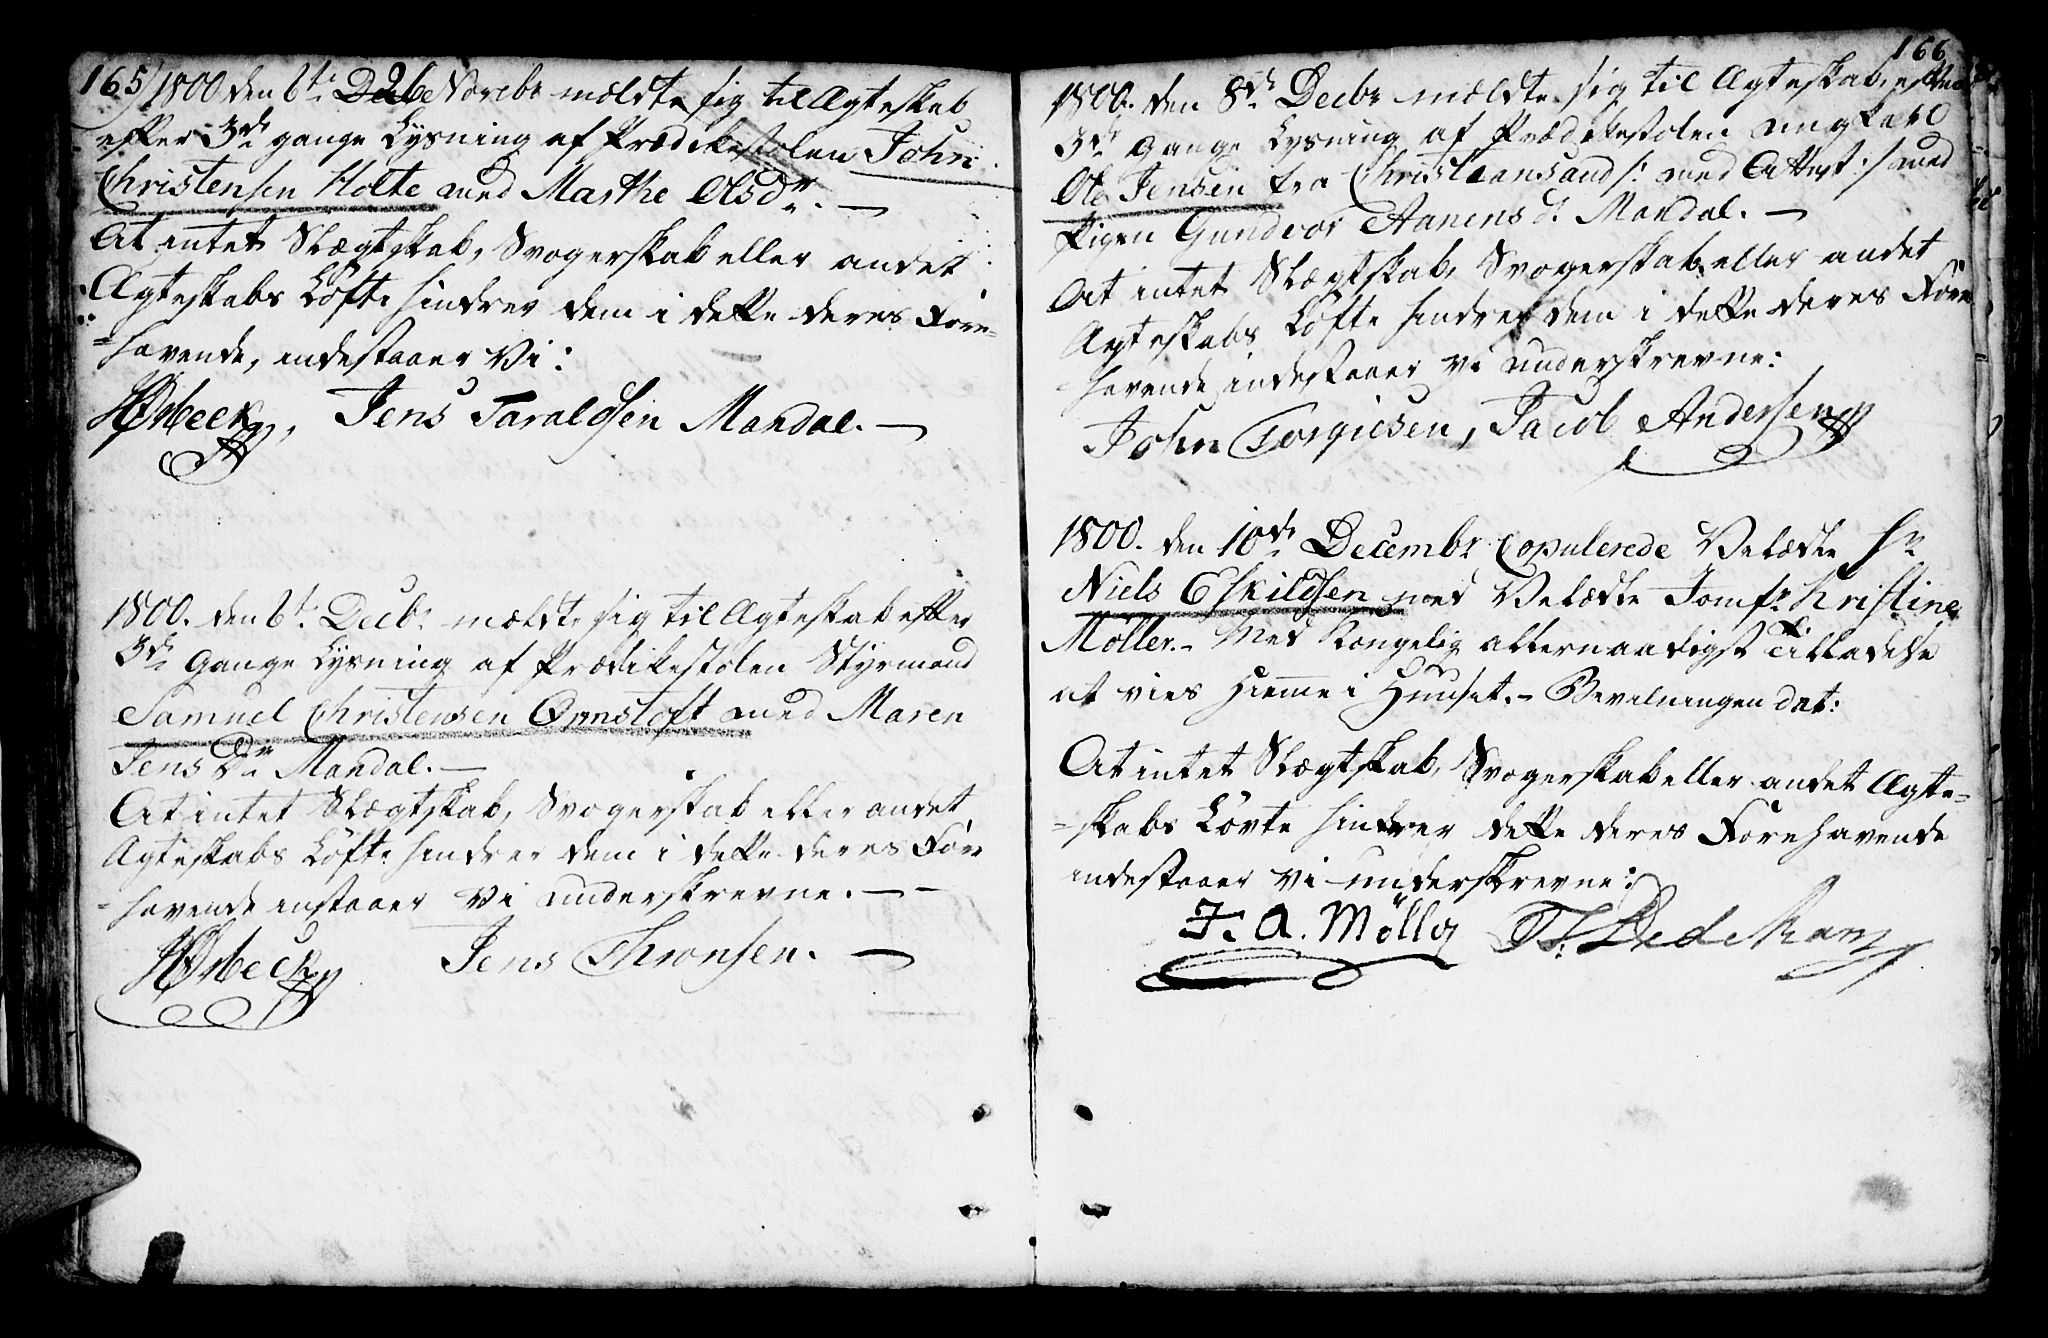 165/ 1800 den 6te Novebr mældte sig til Ægteskab
efter 3de gange Lysning af Prædikestolen John
Christensen Holte med Marthe Olsdr. —
At intet Slægtskab, Svogerskab eller andet
Ægteskabs Löfte hindrer dem i dette deres Fore-
=havende, indestaaer Vi:
Jens Taraldsen Mandal. —
1800. den 6te Decbr mældte sig til Ægteskab efter
3de Gange Lysning af Prædikestolen Styrmand
Samuel Christensen Ormstoft med Maren
Jens Dr Mandal. —
At intet Slægtskab, Svogerskab eller andet
Ægteskabs Löfte hindrer dem i dette deres Fore
=havende instaaer Vi underskrevne. — —
Jens Thronsen. —
166
1800. den 8de Decbr mældte sig til Ægteskab, efter
3de Gange Lysning af Prædikestolen ungkarl
Ole Jensen fra Christiansand /: med Attest :/ med
Pigen Gundvor Aanens dr Mandal. —
At intet Slægtskab, Svogerskab eller andet
Ægteskabs Löfte hindrer dem i dette deres Fore
havende indestaaer vi underskrevne:
John Torgiesen, Jacob Andersen
1800. den 10de Decembr Copulerede Velædle Hr
Niels Eskildsen med Velædle Jomfr Kristine
Möller. – Med Kongelig allernaadigst Tilladelse
at vies hiemme i Huuset. – Bevilningen dat:
At intet Slægtskab, Svogerskab eller andet Ægte=
=skabs Lövte hindrer dette deres Forehavende
indestaaer vi underskrevne:
F. A. Möller Dedekam